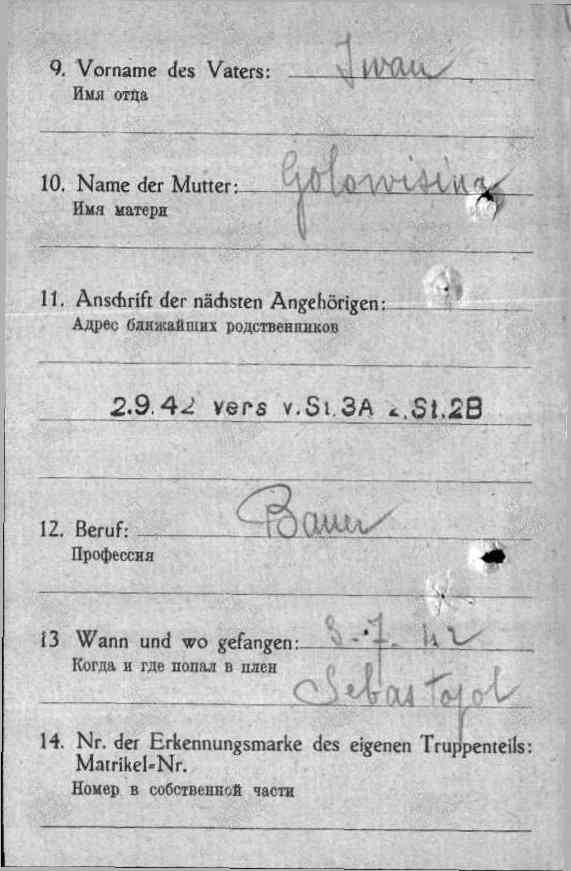 9. Vorname des Vaters: Iwan
Имя отца
10. Name der Mutter: Golowisina
Имя матери
11. Anschrift der nächsten Angehörigen:
Адрес ближайших родственников
2.9.42 vers v.St.3A z.St.2B
12. Beruf: Bauer
Профессия
13 Wann und wo gefangen: 3.7.42
Когда и где попал в плен
Sebastopol
14. Nr. der Erkennungsmarke des eigenen Truppenteils:
Matrikel=Nr.
Номер в собственной части